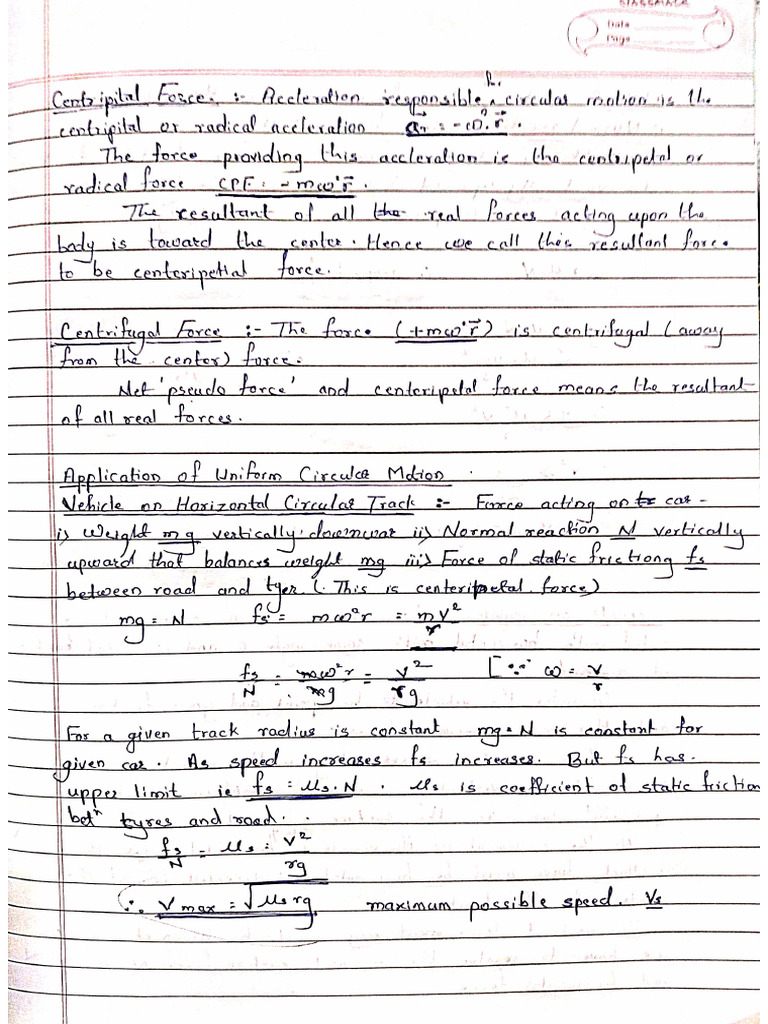 CLASSMATE
Date
Page
for
Centripital Force :- Accleration responsible ^ circular motion is the
centripital or radical accleration a⃗r = -ω².r⃗ .
The force providing this accleration is the centripetal or
radical force CPF = -mω²r⃗ .
The resultant of all the real forces acting upon the
body is toward the center. Hence we call this resultant force
to be centeripetial force.
Centrifugal Force :- The force (+mω²r⃗) is centrifugal (away
from the center) force.
Net 'pseudo force' and centeripetal force means the resultant
of all real forces.
Application of Uniform Circular Motion
Vehicle on Horizontal Circular Track :- Force acting on car -
i) Weight mg vertically downwar ii) Normal reaction N vertically
upward that balances weight mg iii) Force of static frictiong fs
between road and tyer (This is centeripetal force)
mg = N fs = mω²r = mv²/r
fs/N = mω²r/mg = v²/rg [∵ ω = v/r
For a given track radius is constant mg = N is constant for
given car. As speed increases fs increases. But fs has
upper limit ie fs = μs.N . μs is coefficient of static friction
betⁿ tyres and road.
fs/N = μs = v²/rg
∴ Vmax = √μsrg maximum possible speed. Vs